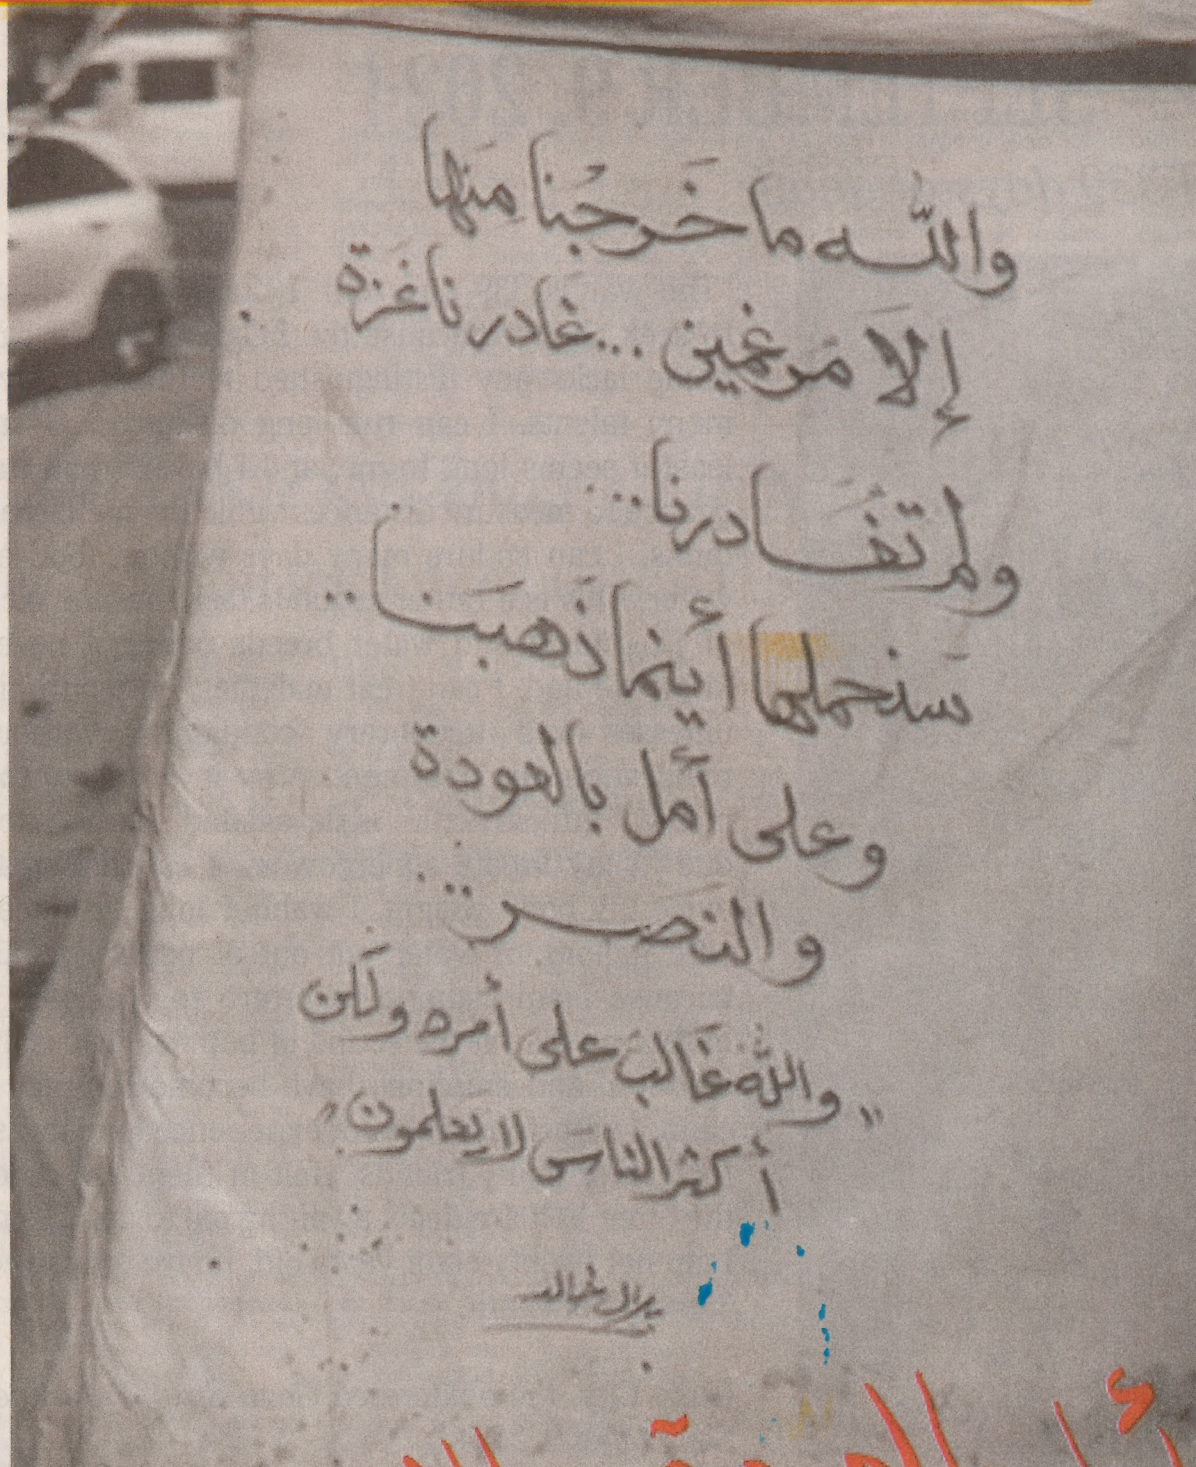 والله ما خَرجْنا منها
إلا مَرغمين ... غادرنا غَزة
ولم تُغادرنا ...
سَنحملها أينما ذَهبَنا ..
وعلى أَمل بالعودة
والنَصر ...
"والله غَالب على أمره ولَكن
أكثر الناس لا يَعلمون"
بلال خالد